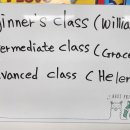 ginner's class (Willia
termediate class (Grace
dvanced class (Helen